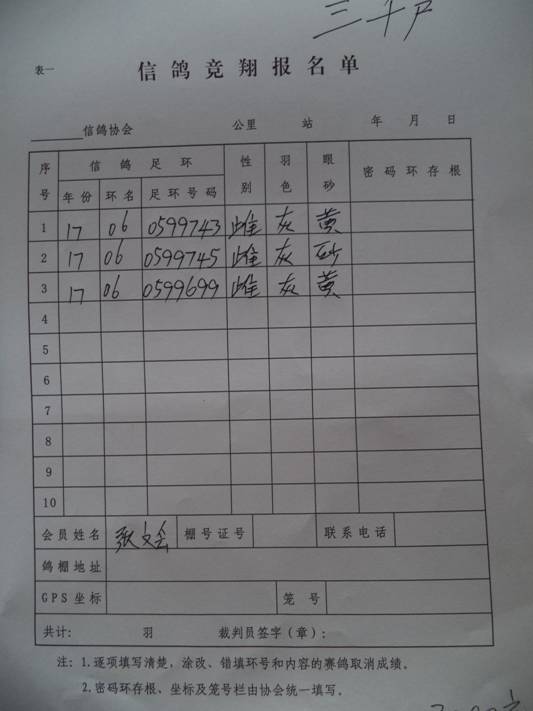 三千户
表一
信鸽竞翔报名单
信鸽协会 公里 站 年 月 日
序号 信鸽足环 性别 羽色 眼砂 密码环存根
年份 环名 足环号码
1 17 06 0599743 雌 灰 黄
2 17 06 0599745 雌 灰 砂
3 17 06 0599699 雌 灰 黄
4
5
6
7
8
9
10
会员姓名 张文会 棚号证号 联系电话
鸽棚地址
GPS坐标 笼号
共计: 羽 裁判员签字(章):
注:1.逐项填写清楚,涂改、错填环号和内容的赛鸽取消成绩。
2.密码环存根、坐标及笼号栏由协会统一填写。